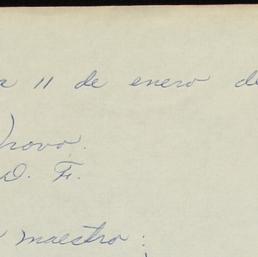 a 11 de enero de
novo.
D. F.
maestro: